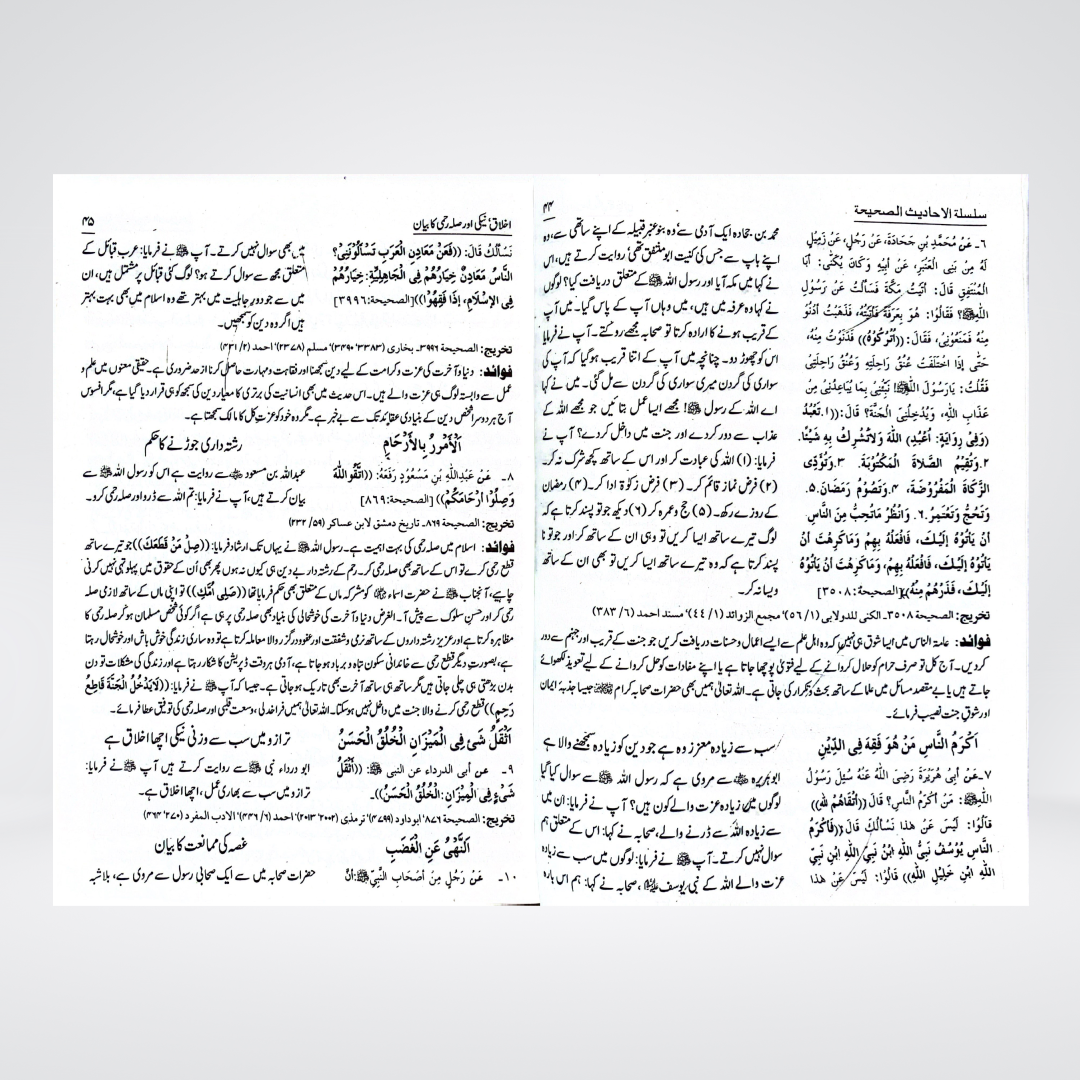 سلسلة الاحادیث الصحیحة
۴۴
٦۔ عَنْ مُحَمَّدِ بْنِ جُحَادَةَ، عَنْ رَجُلٍ، عَنْ زَمِيْلٍ
لَهُ مِنْ بَنِي الْعَنْبَرِ، عَنْ أَبِيْهِ وَكَانَ يُكَنّٰى: أَبَا
الْمُنْتَفِقِ قَالَ: أَتَيْتُ مَكَّةَ فَسَأَلْتُ عَنْ رَسُوْلِ
اللّٰهِ ﷺ؟ فَقَالُوْا: هُوَ بِعَرَفَةَ فَأَتَيْتُهُ، فَذَهَبْتُ أَدْنُوْ
مِنْهُ فَمَنَعُوْنِيْ، فَقَالَ: ((اُتْرُكُوْهُ)) فَدَنَوْتُ مِنْهُ،
حَتّٰى إِذَا اخْتَلَفَتْ عُنُقُ رَاحِلَتِهِ وَعُنُقُ رَاحِلَتِيْ
فَقُلْتُ: يَارَسُوْلَ اللّٰهِ ﷺ! نَبِّئْنِيْ بِمَا يُبَاعِدُنِيْ مِنْ
عَذَابِ اللّٰهِ، وَيُدْخِلُنِيْ الْجَنَّةَ؟ قَالَ: ((١.تَعْبُدُ
(وَفِيْ رِوَايَةٍ: اُعْبُدِ) اللّٰهَ وَلَاتُشْرِكْ بِهِ شَيْئًا.
٢.وَتُقِيْمُ الصَّلَاةَ الْمَكْتُوْبَةَ. ٣.وَتُؤَدِّى
الزَّكَاةَ الْمَفْرُوْضَةَ، ٤.وَتَصُوْمُ رَمَضَانَ.٥.
وَتَحُجُّ وَتَعْتَمِرُ.٦.وَانْظُرْ مَاتُحِبُّ مِنَ النَّاسِ
أَنْ يَأْتُوْهُ إِلَيْكَ، فَافْعَلْهُ بِهِمْ وَمَاكَرِهْتَ أَنْ
يَأْتُوْهُ إِلَيْكَ، فَافْعَلْهُ بِهِمْ، وَمَاكَرِهْتَ أَنْ يَأْتُوْهُ
إِلَيْكَ، فَذَرْهُمْ مِنْهُ)).[الصحيحة:٣٥٠٨]
محمد بن جحادہ ایک آدمی سے وہ بنوعنبر قبیلہ کے اپنے ساتھی سے، وہ
اپنے باپ سے جس کی کنیت ابومنتفق تھی روایت کرتے ہیں، اس
نے کہا میں مکہ آیا اور رسول اللہ ﷺ کے متعلق دریافت کیا؟ لوگوں
نے کہا وہ عرفہ میں ہیں، میں وہاں آپ کے پاس گیا۔ میں آپ
کے قریب ہونے کا ارادہ کرتا تو صحابہ مجھے روکتے۔ آپ نے فرمایا
اس کو چھوڑ دو۔ چنانچہ میں آپ کے اتنا قریب ہوگیا کہ آپ کی
سواری کی گردن میری سواری کی گردن سے مل گئی۔ میں نے کہا
اے اللہ کے رسول ﷺ! مجھے ایسا عمل بتائیں جو مجھے اللہ کے
عذاب سے دور کردے اور جنت میں داخل کردے؟ آپ نے
فرمایا: (۱) اللہ کی عبادت کر اور اس کے ساتھ کچھ شرک نہ کر۔
(۲) فرض نماز قائم کر۔ (۳) فرض زکوٰۃ ادا کر۔ (۴) رمضان
کے روزے رکھ۔ (۵) حج وعمرہ کر (۶) دیکھ جو تو پسند کرتا ہے کہ
لوگ تیرے ساتھ ایسا کریں تو وہی ان کے ساتھ کر اور جو تو نا
پسند کرتا ہے کہ وہ تیرے ساتھ ایسا کریں تو بھی ان کے ساتھ
ویسا نہ کر۔
تخریج: الصحیحة ٣٥٠٨۔ الکنی للدولابی (١/ ٥٦)' مجمع الزوائد (١/ ٤٤)' مسند احمد (٦/ ٣٨٣)
فوائد: عامۃ الناس میں ایسا شوق ہی نہیں کہ وہ اہل علم سے ایسے اعمال وحسنات دریافت کریں جو جنت کے قریب اور جہنم سے دور
کردیں۔ آج کل تو صرف حرام کو حلال کروانے کے لیے فتویٰ پوچھا جاتا ہے یا اپنے مفادات کو حل کروانے کے لیے تعویذ لکھوائے
جاتے ہیں یا بے مقصد مسائل میں علما کے ساتھ بحث وتکرار کی جاتی ہے۔ اللہ تعالیٰ ہمیں بھی حضرات صحابہ کرام جیسا جذبۂ ایمان
اور شوق جنت نصیب فرمائے۔
اَكْرَمُ النَّاسِ مَنْ هُوَ فَقِهَ فِي الدِّيْنِ
سب سے زیادہ معزز وہ ہے جو دین کو زیادہ سمجھنے والا ہے
٧۔ عَنْ أَبِيْ هُرَيْرَةَ رَضِيَ اللّٰهُ عَنْهُ سُئِلَ رَسُوْلُ
اللّٰهِ ﷺ: مَنْ أَكْرَمُ النَّاسِ؟ قَالَ ((أَتْقَاهُمْ لِلّٰهِ))
قَالُوْا: لَيْسَ عَنْ هٰذَا نَسْأَلُكَ قَالَ ((فَأَكْرَمُ
النَّاسِ يُوْسُفُ نَبِيُّ اللّٰهِ ابْنُ نَبِيِّ اللّٰهِ ابْنِ نَبِيِّ
اللّٰهِ ابْنِ خَلِيْلِ اللّٰهِ)) قَالُوْا: لَيْسَ عَنْ هٰذَا
ابوہریرہ سے مروی ہے کہ رسول اللہ ﷺ سے سوال کیا گیا
لوگوں میں زیادہ عزت والے کون ہیں؟ آپ نے فرمایا: ان میں
سے زیادہ اللہ سے ڈرنے والے، صحابہ نے کہا: اس کے متعلق ہم
سوال نہیں کرتے۔ آپ ﷺ نے فرمایا: لوگوں میں سب سے زیادہ
عزت والے اللہ کے نبی یوسف، صحابہ نے کہا: ہم اس بارہ
اخلاق، نیکی اور صلہ رحمی کا بیان
۴۵
نَسْأَلُكَ قَالَ: ((فَعَنْ مَعَادِنِ الْعَرَبِ تَسْأَلُوْنَنِيْ؟
النَّاسُ مَعَادِنُ خِيَارُهُمْ فِي الْجَاهِلِيَّةِ: خِيَارُهُمْ
فِي الْإِسْلَامِ، إِذَا فَقِهُوْا))[الصحيحة:٣٩٩٦]
میں بھی سوال نہیں کرتے۔ آپ ﷺ نے فرمایا: عرب قبائل کے
متعلق مجھ سے سوال کرتے ہو؟ لوگ کئی قبائل پر مشتمل ہیں، ان
میں سے جو دور جاہلیت میں بہتر تھے وہ اسلام میں بھی بہتر
ہیں اگر وہ دین کو سمجھیں۔
تخریج: الصحیحة ٣٩٩٦۔ بخاری (٣٣٨٣' ٣٤٩٠)' مسلم (٢٣٧٨)' احمد (٢/ ٤٣١)
فوائد: دنیا و آخرت کی عزت و کرامت کے لیے دین سمجھنا اور فقاہت ومہارت حاصل کرنا از حد ضروری ہے۔ حقیقی معنوں میں علم و
عمل سے وابستہ لوگ ہی عزت والے ہیں۔ اس حدیث میں بھی انسانیت کی برتری کا معیار دین کی سمجھ کو ہی قرار دیا گیا ہے، مگر افسوس
آج ہر دوسرا شخص دین کے بنیادی عقائد تک سے بے خبر ہے۔ مگر وہ خود کو عزت کل کا مالک سمجھتا ہے۔
اَلْأَمْرُ بِالْأَرْحَامِ
رشتہ داری جوڑنے کا حکم
٨۔ عَنْ عَبْدِاللّٰهِ بْنِ مَسْعُوْدٍ رَفَعَهُ: ((اتَّقُوا اللّٰهَ
وَصِلُوْا أَرْحَامَكُمْ)) [الصحيحة:٨٦٩]
عبداللہ بن مسعود سے روایت ہے اس کو رسول اللہ ﷺ سے
بیان کرتے ہیں، آپ نے فرمایا: تم اللہ سے ڈرو اور صلہ رحمی کرو۔
تخریج: الصحیحة ٨٦٩۔ تاریخ دمشق لابن عساکر (٥٩/ ٢٣٢)
فوائد: اسلام میں صلہ رحمی کی بہت اہمیت ہے۔ رسول اللہ ﷺ نے یہاں تک ارشاد فرمایا: ((صِلْ مَنْ قَطَعَكَ)) جو تیرے ساتھ
قطع رحمی کرے تو اس کے ساتھ بھی صلہ رحمی کر۔ رحم کے رشتہ دار بے دین ہی کیوں نہ ہوں پھر بھی اُن کے حقوق میں پہلو تہی نہیں کرنی
چاہیے، آنجناب ﷺ نے حضرت اسماء کو مشرکہ ماں کے متعلق بھی حکم فرمایا تھا ((صَلِي أُمَّكِ)) تو اپنی ماں کے ساتھ لازمی صلہ
رحمی کر اور حسن سلوک سے پیش آ۔ الغرض دنیا و آخرت کی خوشحالی کی بنیاد بھی صلہ رحمی پر ہی ہے اگر کوئی شخص مسلمان ہو کر صلہ رحمی کا
مظاہرہ کرتا ہے اور عزیز رشتہ داروں کے ساتھ نرمی وشفقت اور عفو و درگزر والا معاملہ کرتا ہے تو وہ ساری زندگی خوش باش اور خوشحال رہتا
ہے، بصورت دیگر قطع رحمی سے خاندانی سکون تباہ و برباد ہو جاتا ہے، آدمی ہر وقت ڈپریشن کا شکار رہتا ہے اور زندگی کی مشکلات تو دن
بدن بڑھتی ہی چلی جاتی ہیں مگر ساتھ ہی ساتھ آخرت بھی تاریک ہو جاتی ہے۔ جیسا کہ آپ ﷺ نے فرمایا: ((لَا يَدْخُلُ الْجَنَّةَ قَاطِعُ
رَحِمٍ)) قطع رحمی کرنے والا جنت میں داخل نہیں ہوسکتا۔ اللہ تعالیٰ ہمیں فراخدلی، وسعت قلبی اور صلہ رحمی کی توفیق عطا فرمائے۔
أَثْقَلُ شَئٍ فِي الْمِيْزَانِ الْخُلُقُ الْحَسَنُ
ترازو میں سب سے وزنی نیکی اچھا اخلاق ہے
٩۔ عن أبي الدرداء عن النبي ﷺ: ((أَثْقَلُ
شَيْءٍ فِي الْمِيْزَانِ: الْخُلُقُ الْحَسَنُ))۔
ابو درداء نبی ﷺ سے روایت کرتے ہیں آپ ﷺ نے فرمایا:
ترازو میں سب سے بھاری عمل، اچھا اخلاق ہے۔
تخریج: الصحیحة ٨٧٦' ابوداود (٤٧٩٩)' ترمذی (٢٠٠٢' ٢٠١٣)' احمد (٦/ ٤٤٦)' الادب المفرد (٢٧٠' ٤٦٤)
اَلنَّهْيُ عَنِ الْغَضَبِ
غصہ کی ممانعت کا بیان
١٠۔ عَنْ رَجُلٍ مِنْ أَصْحَابِ النَّبِيِّ ﷺ: أَنَّ
حضرات صحابہ میں سے ایک صحابی رسول سے مروی ہے، بلاشبہ